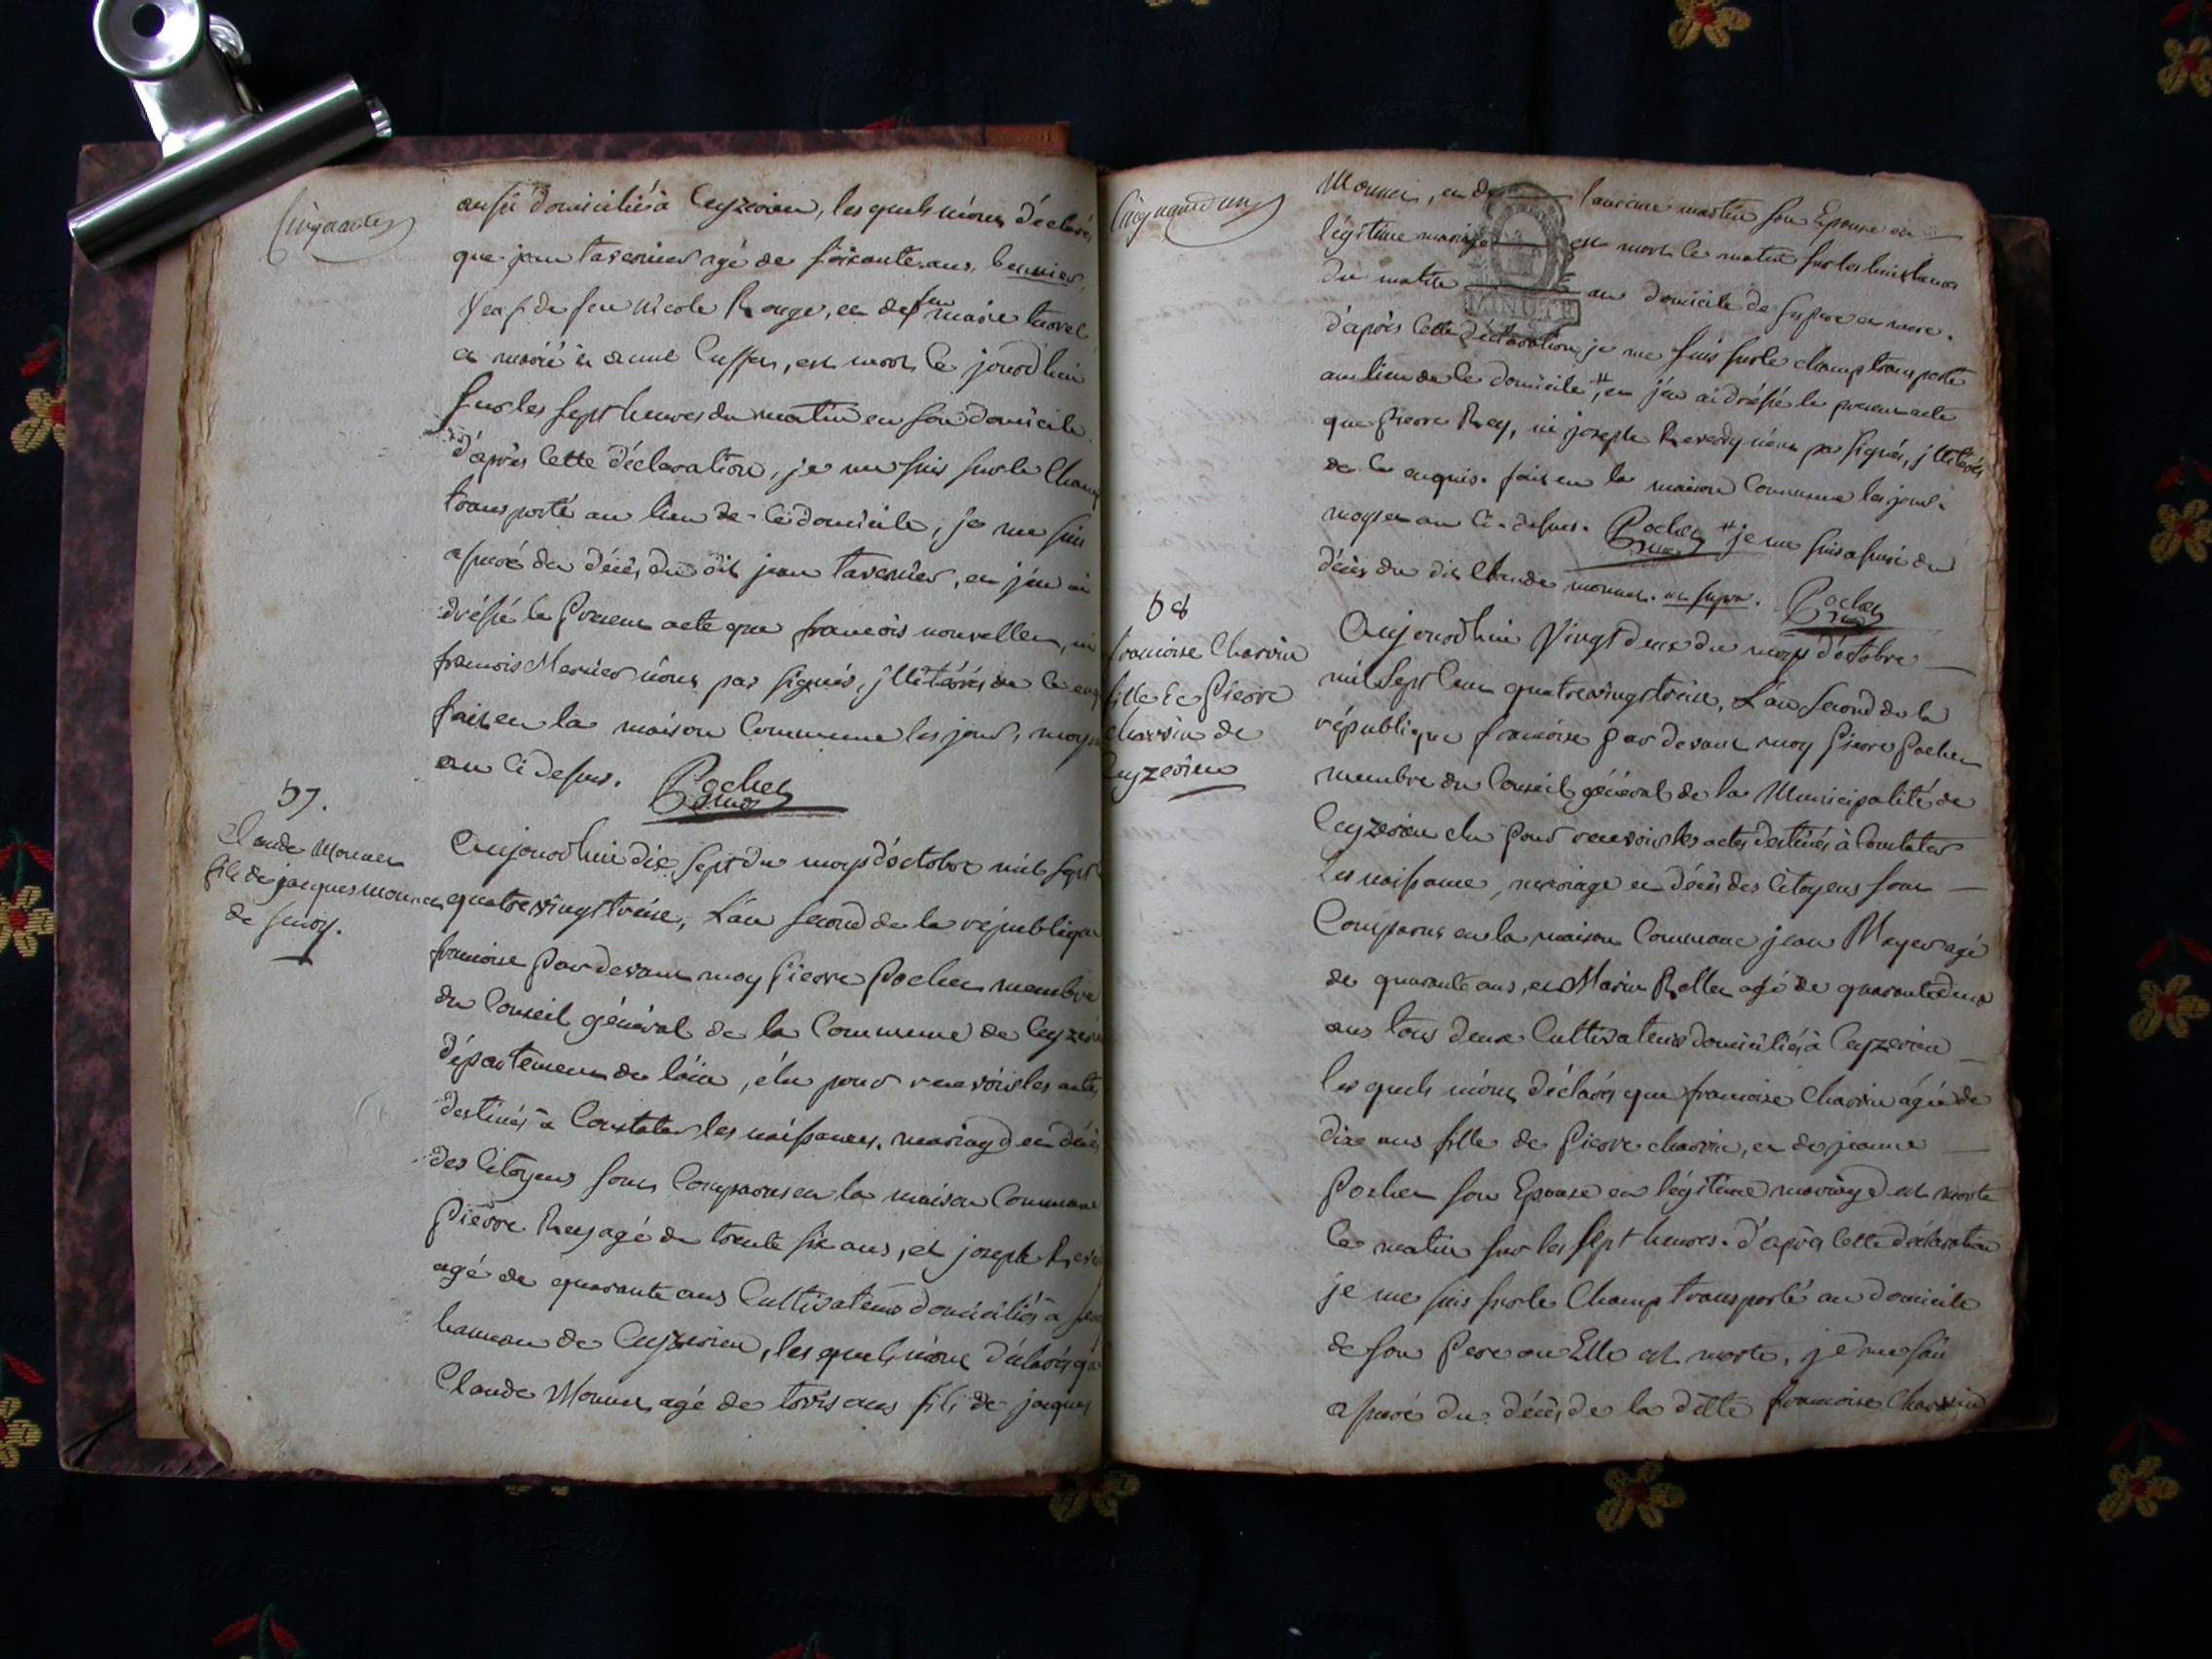 Cinquante
aussi domiciliés à Ceyzerieu, lesquels m'ont déclarés
que jean tavernier agé de soixante ans,
Veuf de feu nicole Rouge, et de feu marie
et marié à anne, est mort ce jourd'hui
sur les sept heures du matin en son domicile.
d'après cette déclaration, je me suis sur le Champ
transporté au lieu de ce domicile, je me suis
assuré du décès du dit jean tavernier, et j'en ai
dréssé le Present acte que francois nouvellet, ni
francois Mernier n'ont pas signés, illitérés de ce enq
fait en la maison Commune les jours, moys
an ci dessus. Pochet
57.
Claude Monnet
fils de jacques monnet
de
Aujourdhui dix sept du moys d'octobre mil sept
quatrevingt treize, L'an second de la république
francoise Par devant moy Pierre Pochet membre
du Conseil général de la Commune de Ceyzerieu
département de l'ain, élu pour recevoir les actes
destinés à Constater les naissances, mariages et décès
des Citoyens sont Comparus en la maison Commune
Pierre Rey agé de trente six ans, et joseph Reverdy
agé de quarante ans Cultivateurs domiciliés à
hameau de Ceyzerieu, les quels m'ont déclarés que
Claude Monnet agé de trois ans fils de jacques
Cinquante un
Monnet, et de laurence martin son Epouse en
légitime mariage est mort ce matin sur les huit heures
du matin au domicile de ses pere et mere.
MINUTE
d'après cette déclaration, je me suis sur le champ transporté
au lieu de ce domicile, # et j'en ai dréssé le present acte
que Pierre Rey, ni joseph Reverdy n'ont pas signés, illitérés
de ce enquis. fait en la maison Commune les jour.
moys et an ci-dessus. Pochet # je me suis assuré du
décès du dit Claude monnet. ut supra. Pochet
58
francoise Charvin
fille de Pierre
charvin de
Ceyzerieu
Aujourdhui Vingt deux du moys d'octobre
mil sept cent quatrevingt treize, L'an second de la
république francoise par devant moy Pierre Pochet
membre du Conseil général de la Municipalité de
Ceyzerieu élu pour recevoir les actes destinés à Constater
les naissance, mariage et décès des Citoyens sont
Comparus en la maison Commune jean Meyer agé
de quarante ans, et Marin Rollet agé de quarante deux
ans tous deux Cultivateurs domiciliés à Ceyzerieu
les quels m'ont déclarés que francoise Charvin agée de
dix ans fille de Pierre charvin, et de jeanne
Pochet son Epouse en légitime mariage est morte
ce matin sur les sept heures. d'après cette déclaration
je me suis sur le Champ transporté au domicile
de son Pere ou Elle est morte, je me suis
assuré du décès de la ditte francoise Charvin